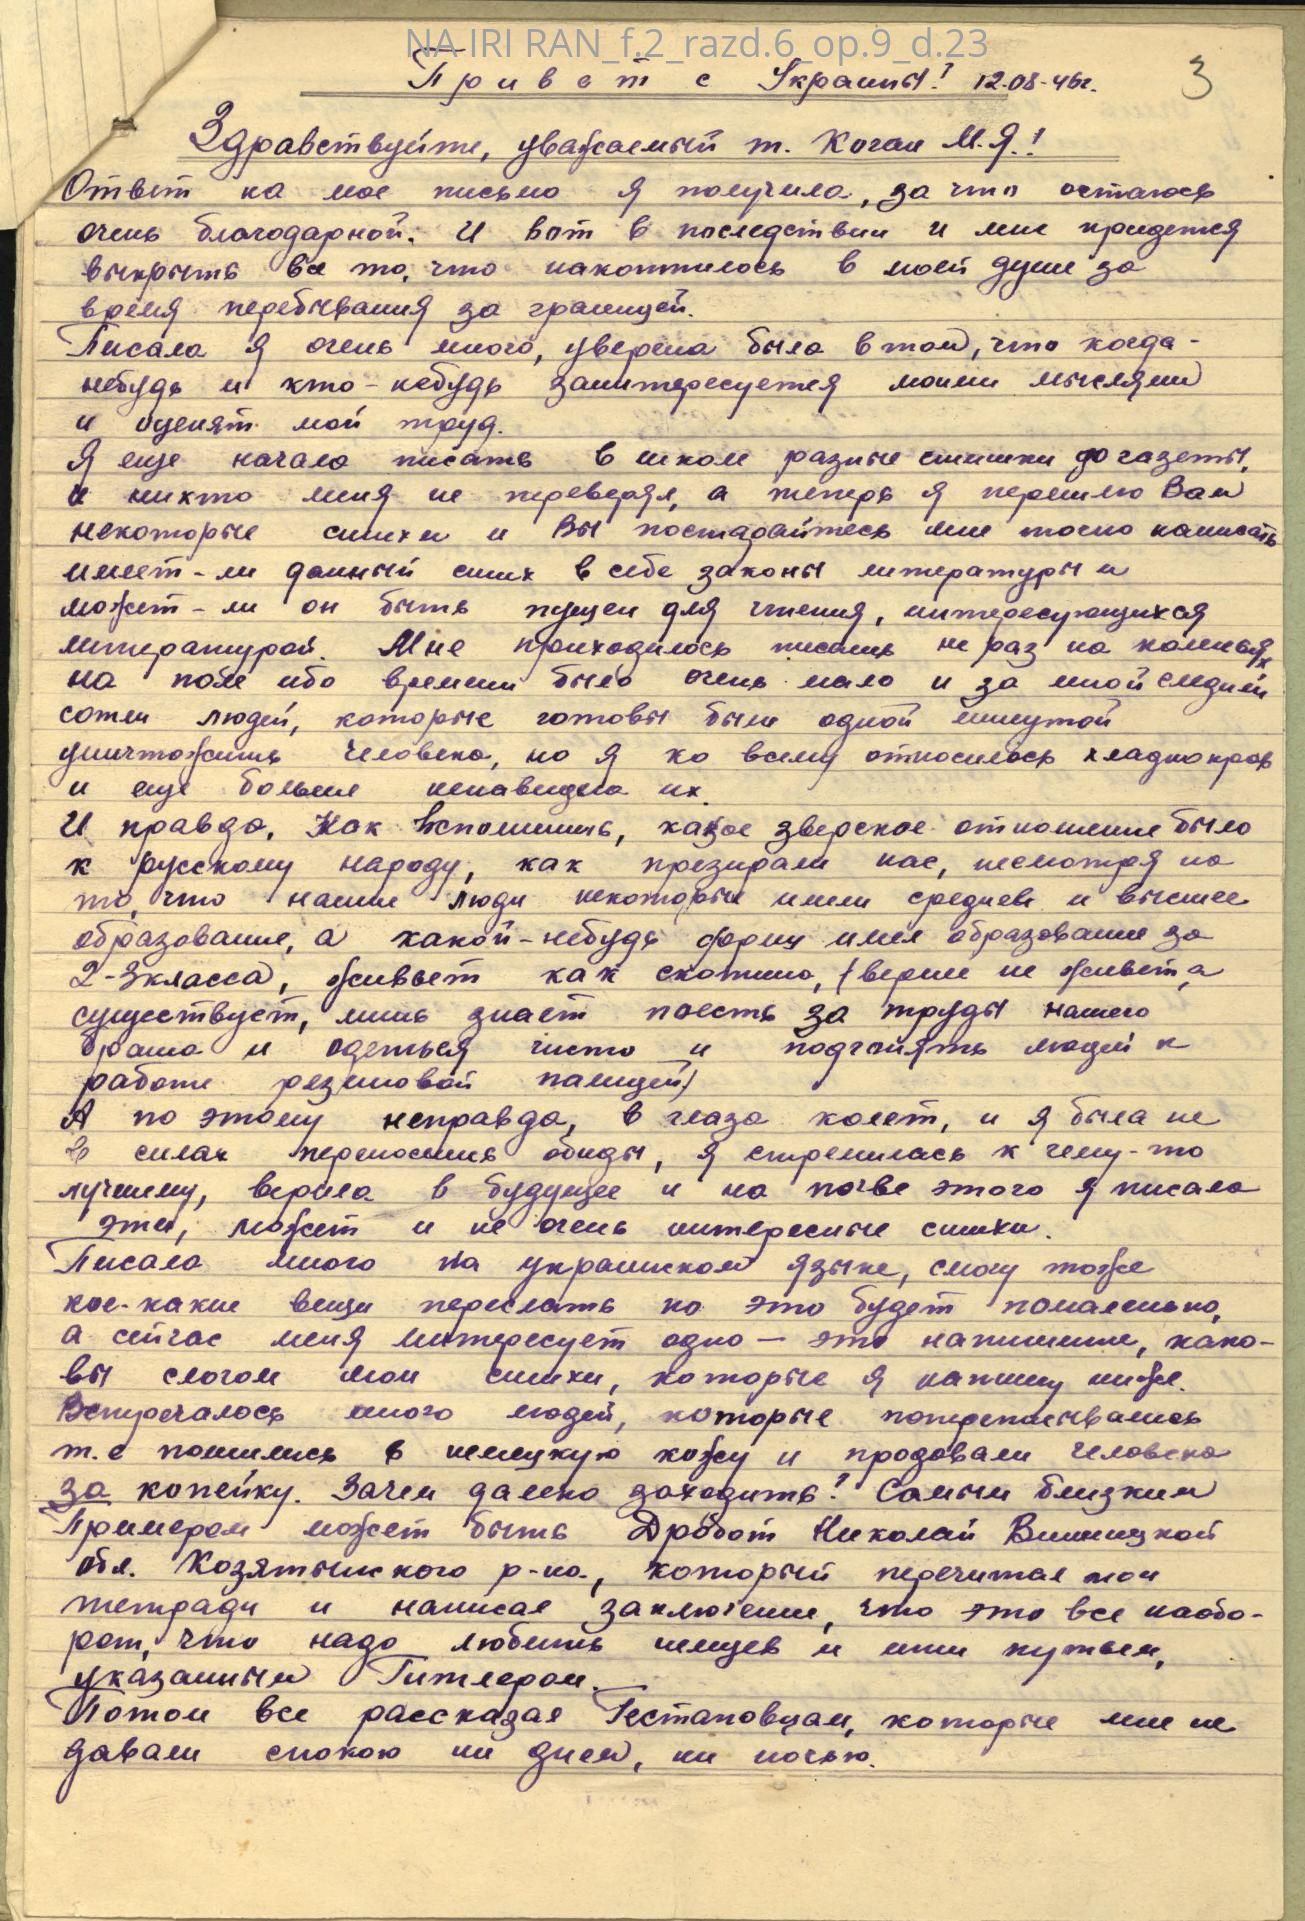 NA IRI RAN_f.2_razd.6_op.9_d.23
Привет с Украины! 12.08-46г.
3
Здравствуйте, уважаемый т. Коган М.Я.!
Ответ на мое письмо я получила, за что остаюсь
очень благодарной. И вот в последствии и мне придется
выкрыть все то, что накопилось в моей душе за
время перебывания за границей.
Писала я очень много, уверена была в том, что когда-
небудь и кто-небудь заинтересуется моими мыслями
и оценят мой труд.
Я еще начала писать в школе разные стишки до газеты,
и никто меня не переверял, а теперь я перешлю Вам
некоторые стихи и Вы постарайтесь мне точно написать
имеет-ли данный стих в себе законы литературы и
может-ли он быть пущен для чтения, интересующихся
литературой. Мне приходилось писать не раз на коленях
на поле ибо времени было очень мало и за мной следили
сотни людей, которые готовы были одной минутой
уничтожить человека, но я ко всему относилась хладнокров
и еще больше ненавидела их.
И правда, Как вспомнишь, какое зверское отношение было
к русскому народу, как презирали нас, несмотря на
то, что наши люди некоторые имели среднее и высшее
образование, а какой-небудь фриц имел образование за
2-3класса, живьет как скотина, (вернее не живет, а
существует, лишь знает поесть за труды нашего
брата и одеться чисто и подгонять людей к
работе резиновой палицей)
А по этому неправда, в глаза колет, и я была не
в силах переносить обиды, я стремилась к чему-то
лучшему, верила в будущее и на почве этого я писала
эти, может и не очень интересные стихи.
Писала много на украинском языке, смогу тоже
кое-какие вещи переслать но это будет помаленьку,
а сейчас меня интересует одно — это напишите, како-
вы слогом мои стихи, которые я напишу ниже.
Встречалось много людей, которые попереписывались
т.е пошились в немецкую кожу и продавали человека
за копейку. Зачем далеко заходить? Самым близким
Примером может быть Дробот Николай Винницкой
обл. Козятынского р-на, который перечитал мои
тетради и написал заключение, что это все наобо-
рот, что надо любить немцев и итти путьем,
указанным Гитлером.
Потом все рассказал Гестаповцам, которые мне не
давали спокою ни днем, ни ночью.